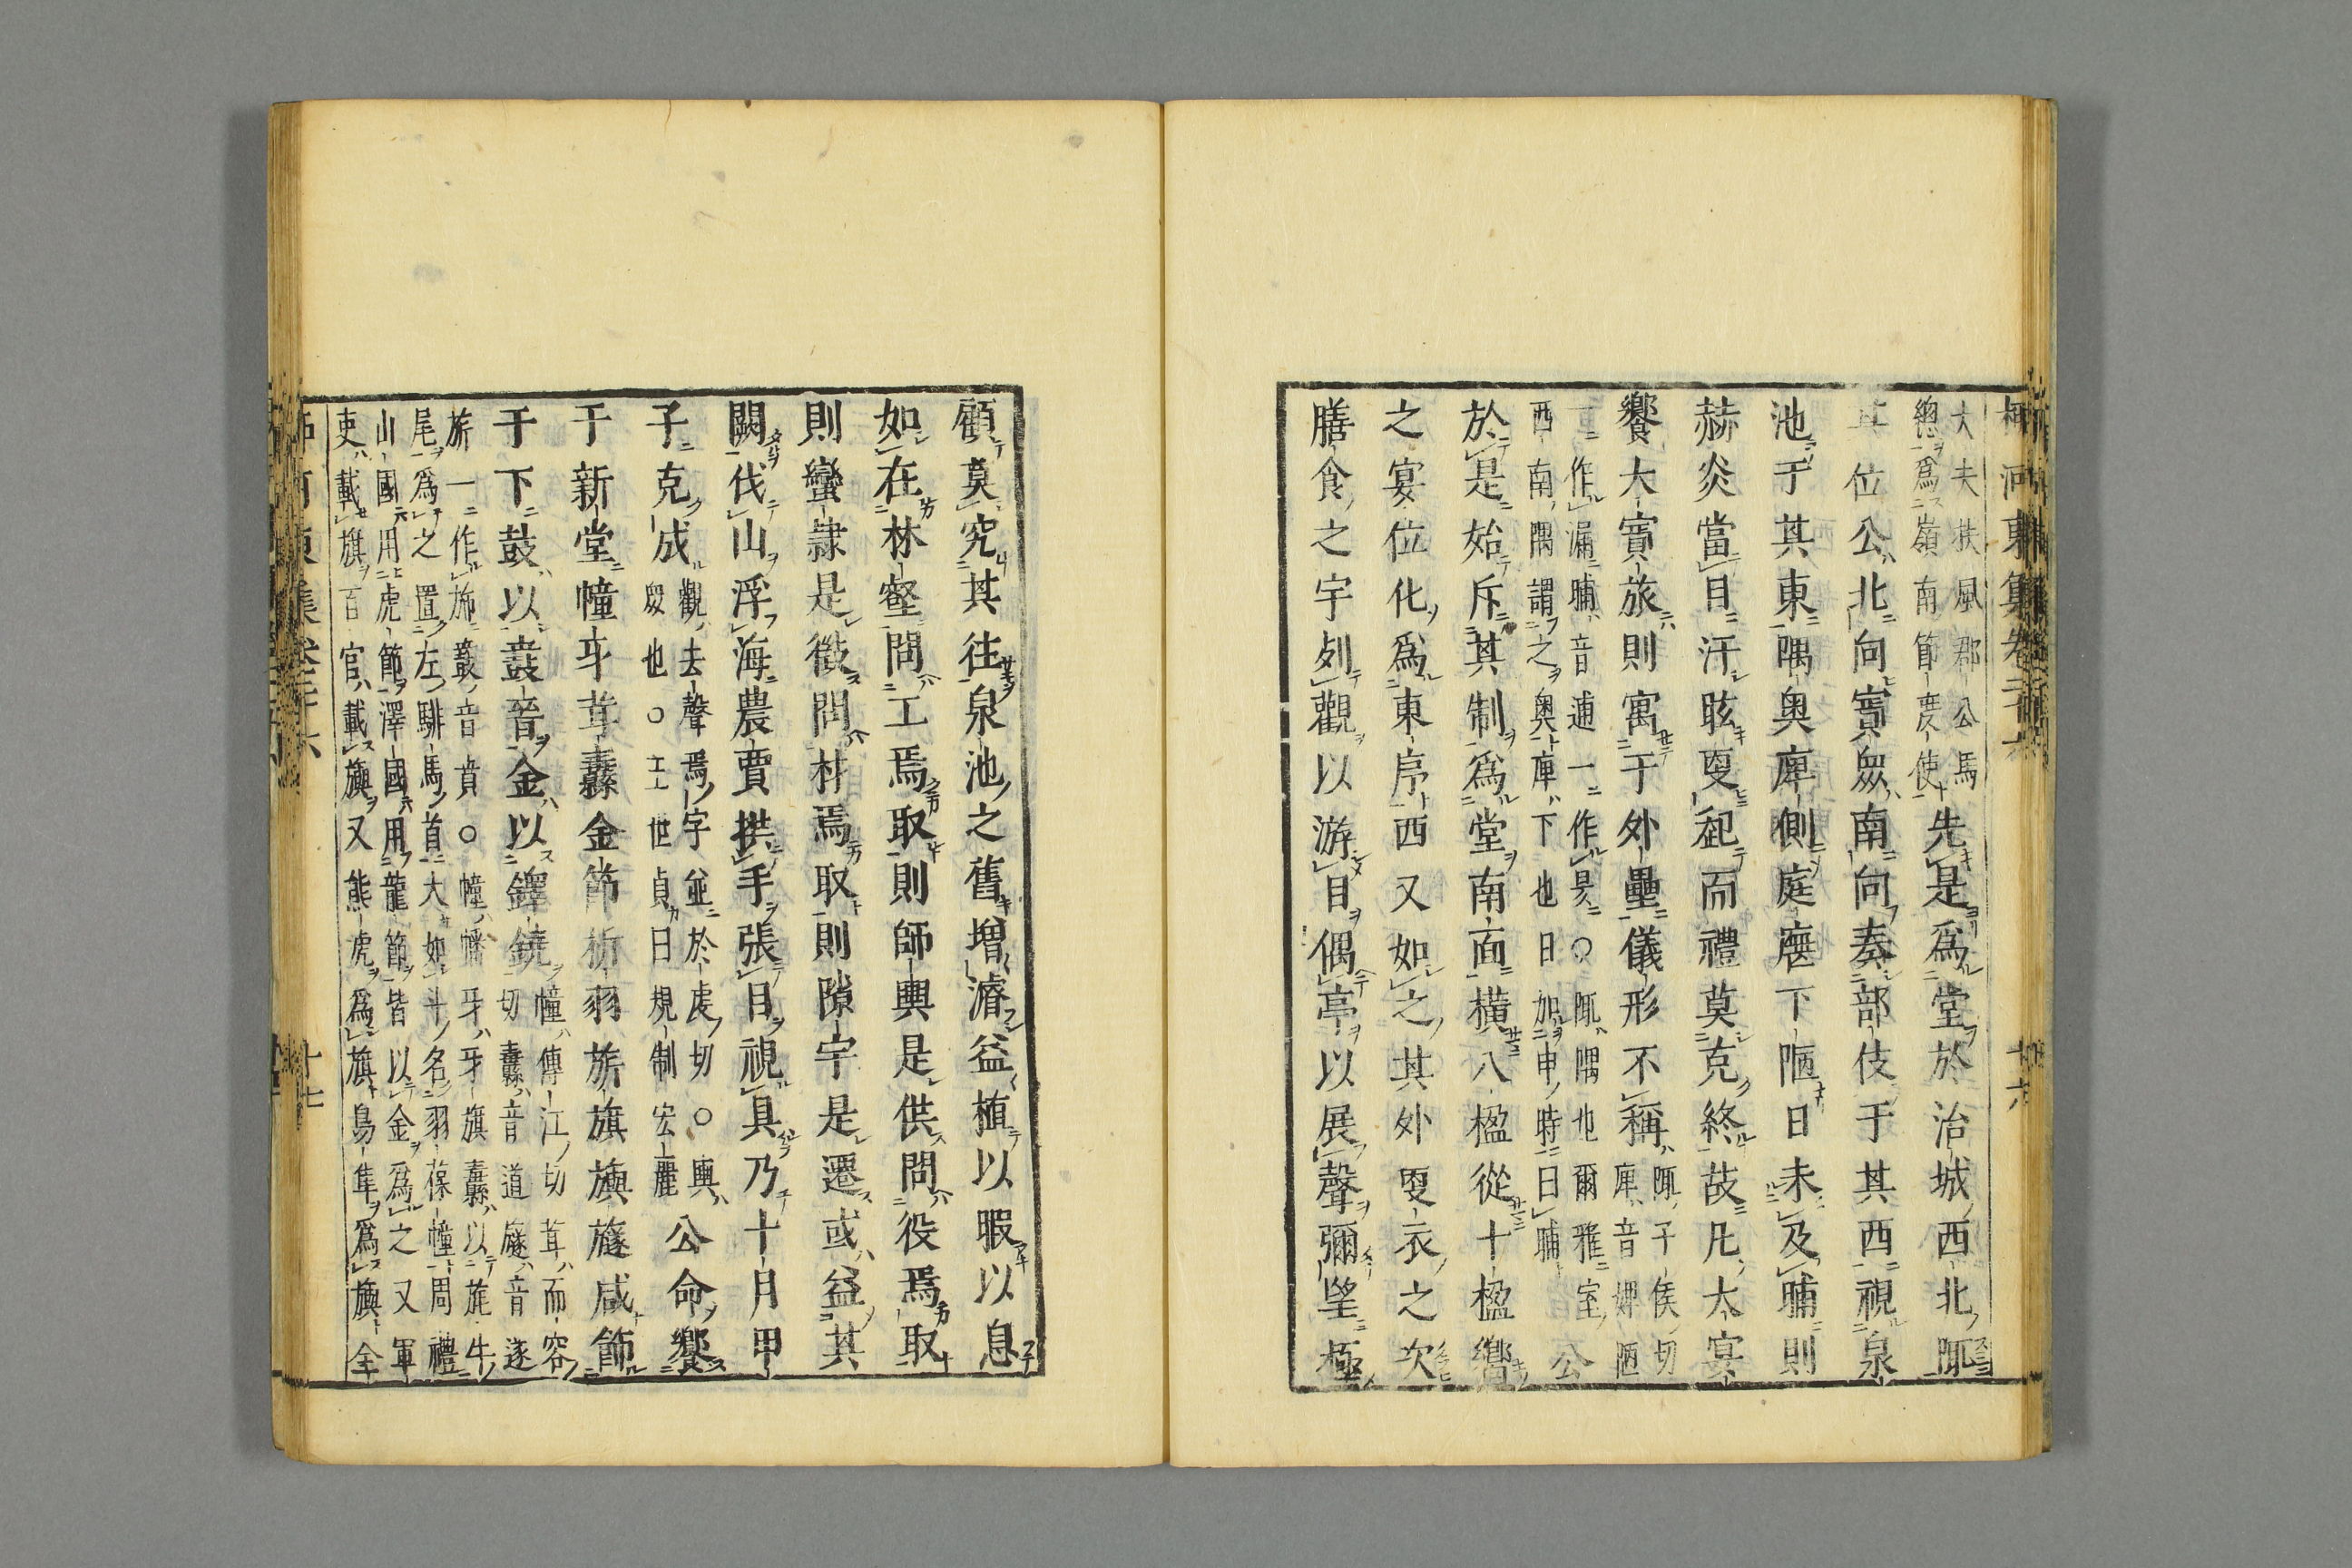 柳河東集卷二十六 十六
大夫扶風郡公馬
總爲嶺南節度使
先是爲堂於治城西北陬
其位公北向賓衆南向奏部伎于其西視泉
池于其東隅奥庳側庭廡下陋日未及晡則
赫炎當目汗眩更起而禮莫克終故凡大宴
饗大賓旅則寓于外壘儀形不稱
陬子侯切
庳音婢陋
一作漏晡音逋一作昃○陬隅也爾雅室
西南隅謂之奥庳下也日加申時曰晡
公
於是始斥其制爲堂南面横八楹從十楹嚮
之宴位化爲東序西又如之其外更衣之次
膳食之宇列觀以游目偶亭以展聲彌望極
顧莫究其往泉池之舊增濬益植以暇以息
如在林壑問工焉取則師輿是供問役焉取
則蠻隷是徵問材焉取則隙宇是遷或益其
闕伐山浮海農賈拱手張目視具乃十月甲
子克成
觀去聲焉字並於虔切○輿
衆也○王世貞曰規制宏麗
公命饗
于新堂幢牙茸纛金節析羽旂旗旟旞咸飾
于下鼓以鼖音金以鐸鐃
幢傳江切茸而容
切纛音道旞音遂
旂一作旆鼖音賁○幢幡牙牙旗纛以旄牛
尾爲之置左騑馬首大如斗名羽葆幢周禮
山國用虎節澤國用龍節皆以金爲之又軍
吏載旗百官載旟又熊虎爲旗鳥隼爲旟全
柳河東集卷二十六 十七